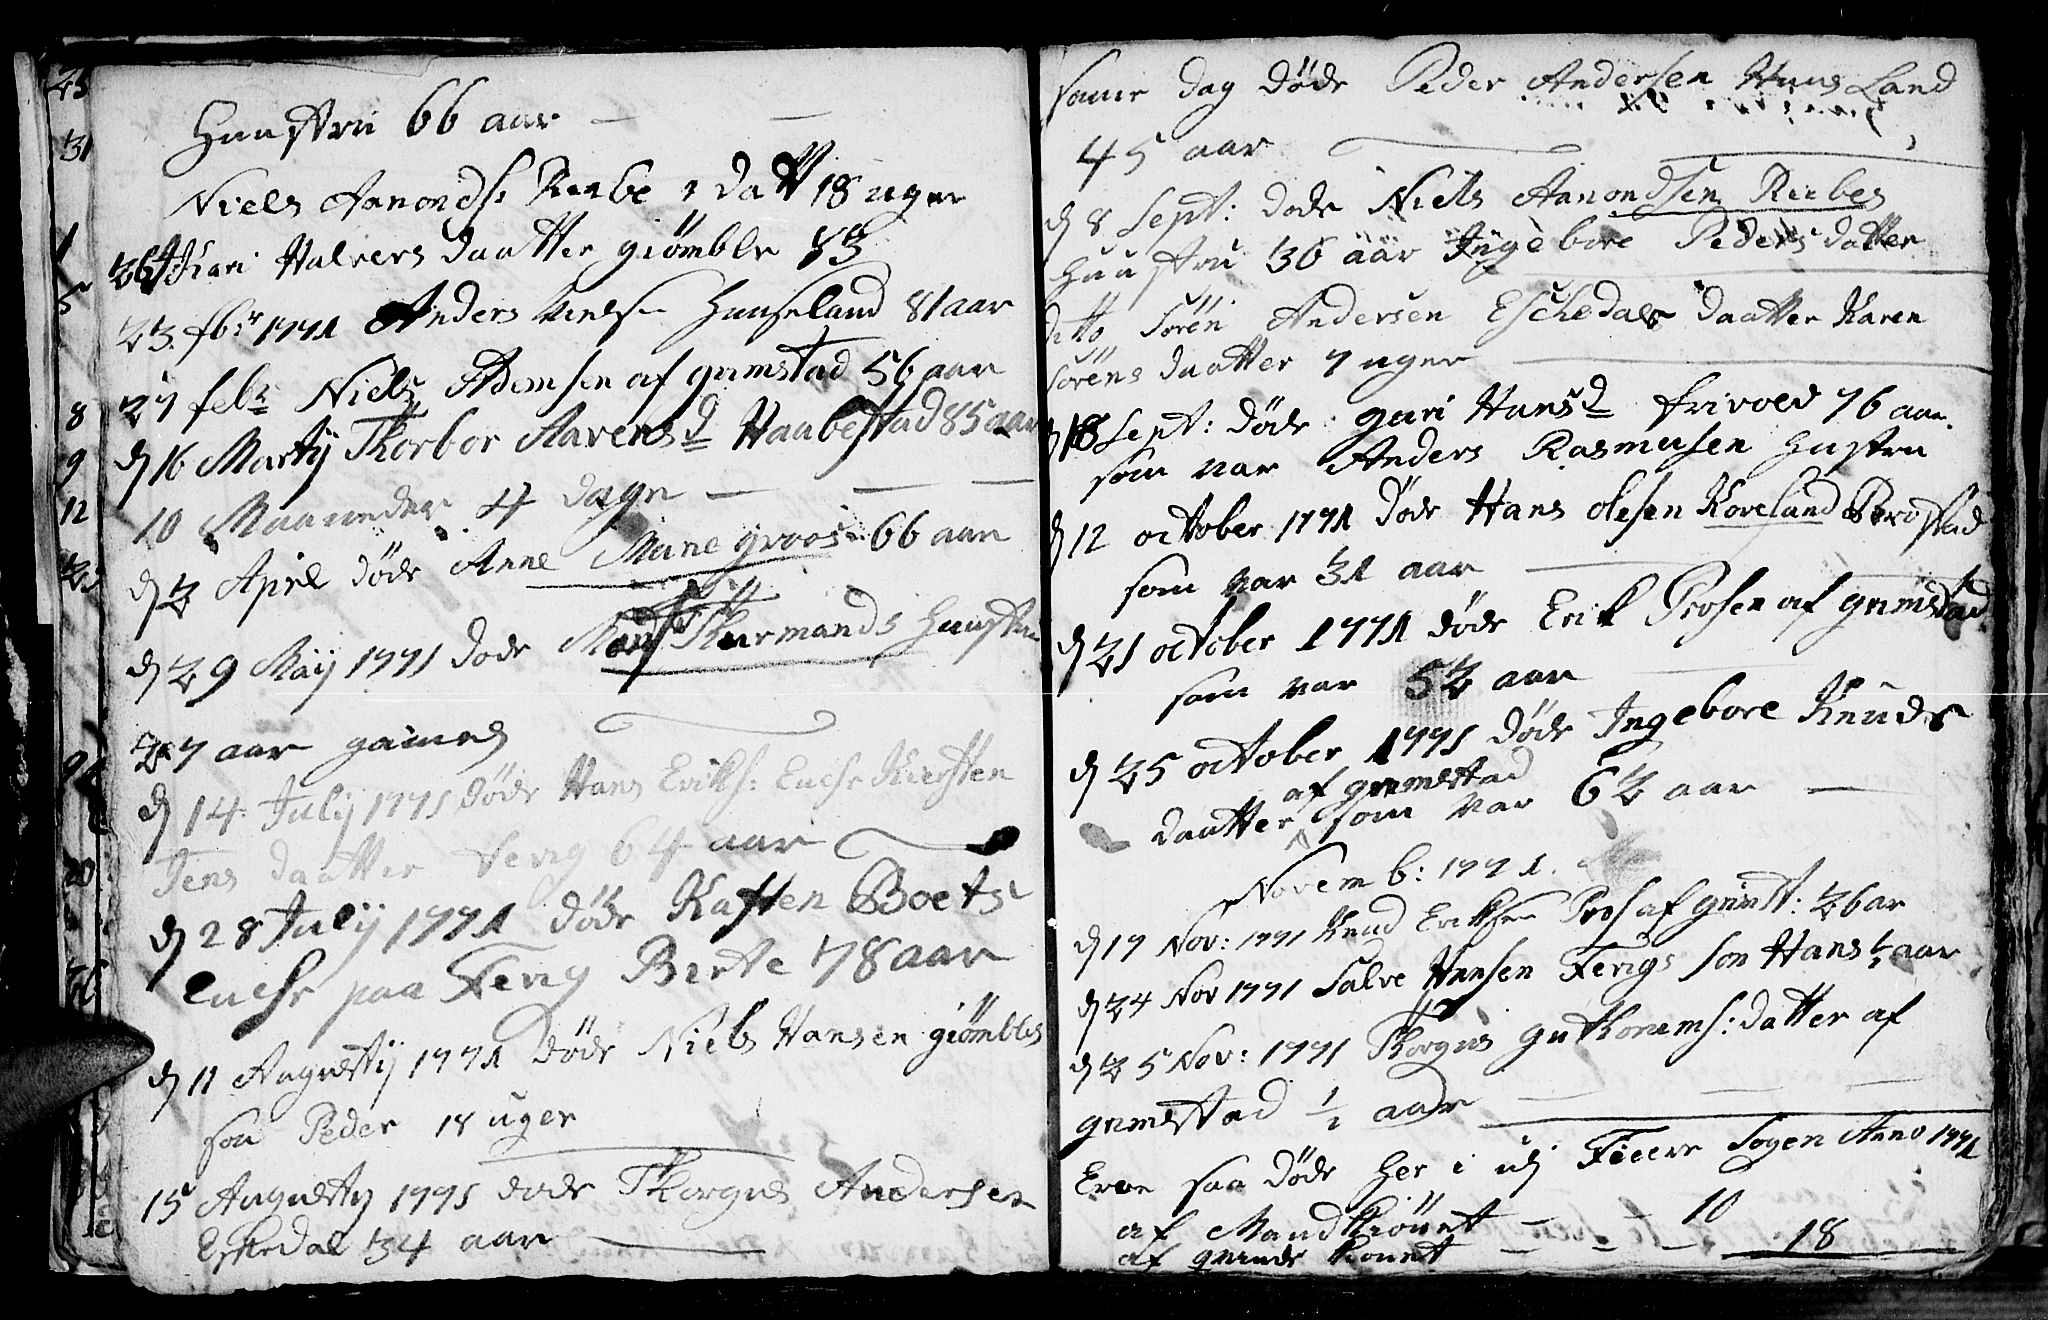 Huustru 66 aar
Niels Aanonds: Reebe 1 datt 18 uger
26 Kari Halvers daatter giømble 83
23 fbr 1771 Anders Nielse Hunseland 81 aar
27 febr Niels Ademsen af grimstad 56 aar
d 16 Marty Thorbor Aavensd Vaabestad 85 aar
10 Maaneder 4 dage
d 2 April døde Anne Marie groos 66 aar
d 29 May 1771 døde Thurmands Huustru
27 aar gammel
d 14 July 1771 døde Hans Eriks: Encke Kiersten
Jens daatter Fevig 64 aar
d 28 July 1771 døde Kasten Boets
Encke paa Fevig Birte 78 aar
d 11 Augusty 1771 døde Niels Hansen giømbles
søn Peder 18 uger
15 Augusty 1771 døde Thorgus Andersen
Eskedal 34 aar
same dag døde Peder Andersen Huns Land
45 aar
d 8 Sept: døde Niels Aanondsen Reebes
Huustru 36 aar Ingebore Peders datter
ditto Søren Andersen Eschedals daatter Karen
Sørens daatter 7 uger
d 18 Sept: døde gari Hansd frivold 76 aar
som var Anders Rasmusen Hustru
d 12 october 1771 døde Hans olesen Roresand Brøstad
som var 31 aar
d 21 october 1771 døde Erik Prosen af grimstad
som var 52 aar
d 25 october 1771 døde Ingebore Knuds
af grimstad
daatter som var 62 aar
Novemb: 1771.
d 17 Nov: 1771 Knud Eriksen Pros af grimst: 26 ar
d 24 Nov 1771 Salve Hansen Fevigs søn Hans 1/2 aar
d 25 Nov: 1771 Thorgus guthorems: datter af
grimestad 1/2 aar
Ere saa døde her i udj Fiere Sogen Anno 1771
af Mandkiønnet 10
af qvinde kiønnet 18